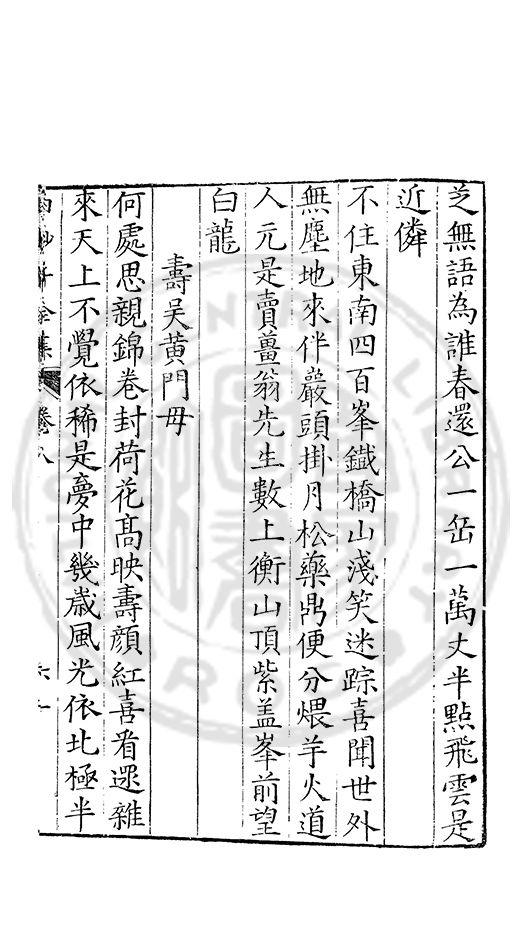 芝無語為誰春還公一岳一萬丈半點飛雲是
近隣
不住東南四百峯鐵橋山淺笑迷踪喜聞世外
無塵地來伴巖頭掛月松藥鼎便分煨芋火道
人元是賣薑翁先生數上衡山頂紫盖峯前望
白龍
壽吴黄門母
何處思親錦卷封荷花髙映壽顔紅喜看遝雜
來天上不覺依稀是夢中幾歲風光依北極半
全集 卷八 六十